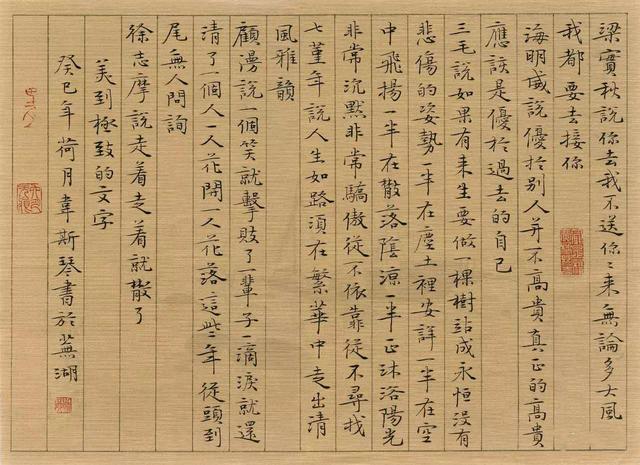 梁實秋說你去我不送你〻来無論多大風
我都要去接你
海明威說優於別人并不高貴真正的高貴
應該是優於過去的自己
三毛說如果有来生要做一棵樹站成永恒沒有
悲傷的姿勢一半在塵土裡安詳一半在空
中飛揚一半在散落陰涼一半正沐浴陽光
非常沉默非常驕傲從不依靠從不尋找
七堇年說人生如路須在繁華中走出清
風雅韻
顧漫說一個笑就擊敗了一輩子一滴淚就還
清了一個人一人花開一人花落這些年從頭到
尾無人問詢
徐志摩說走着走着就散了
美到極致的文字
癸巳年荷月韋斯琴書於蕪湖